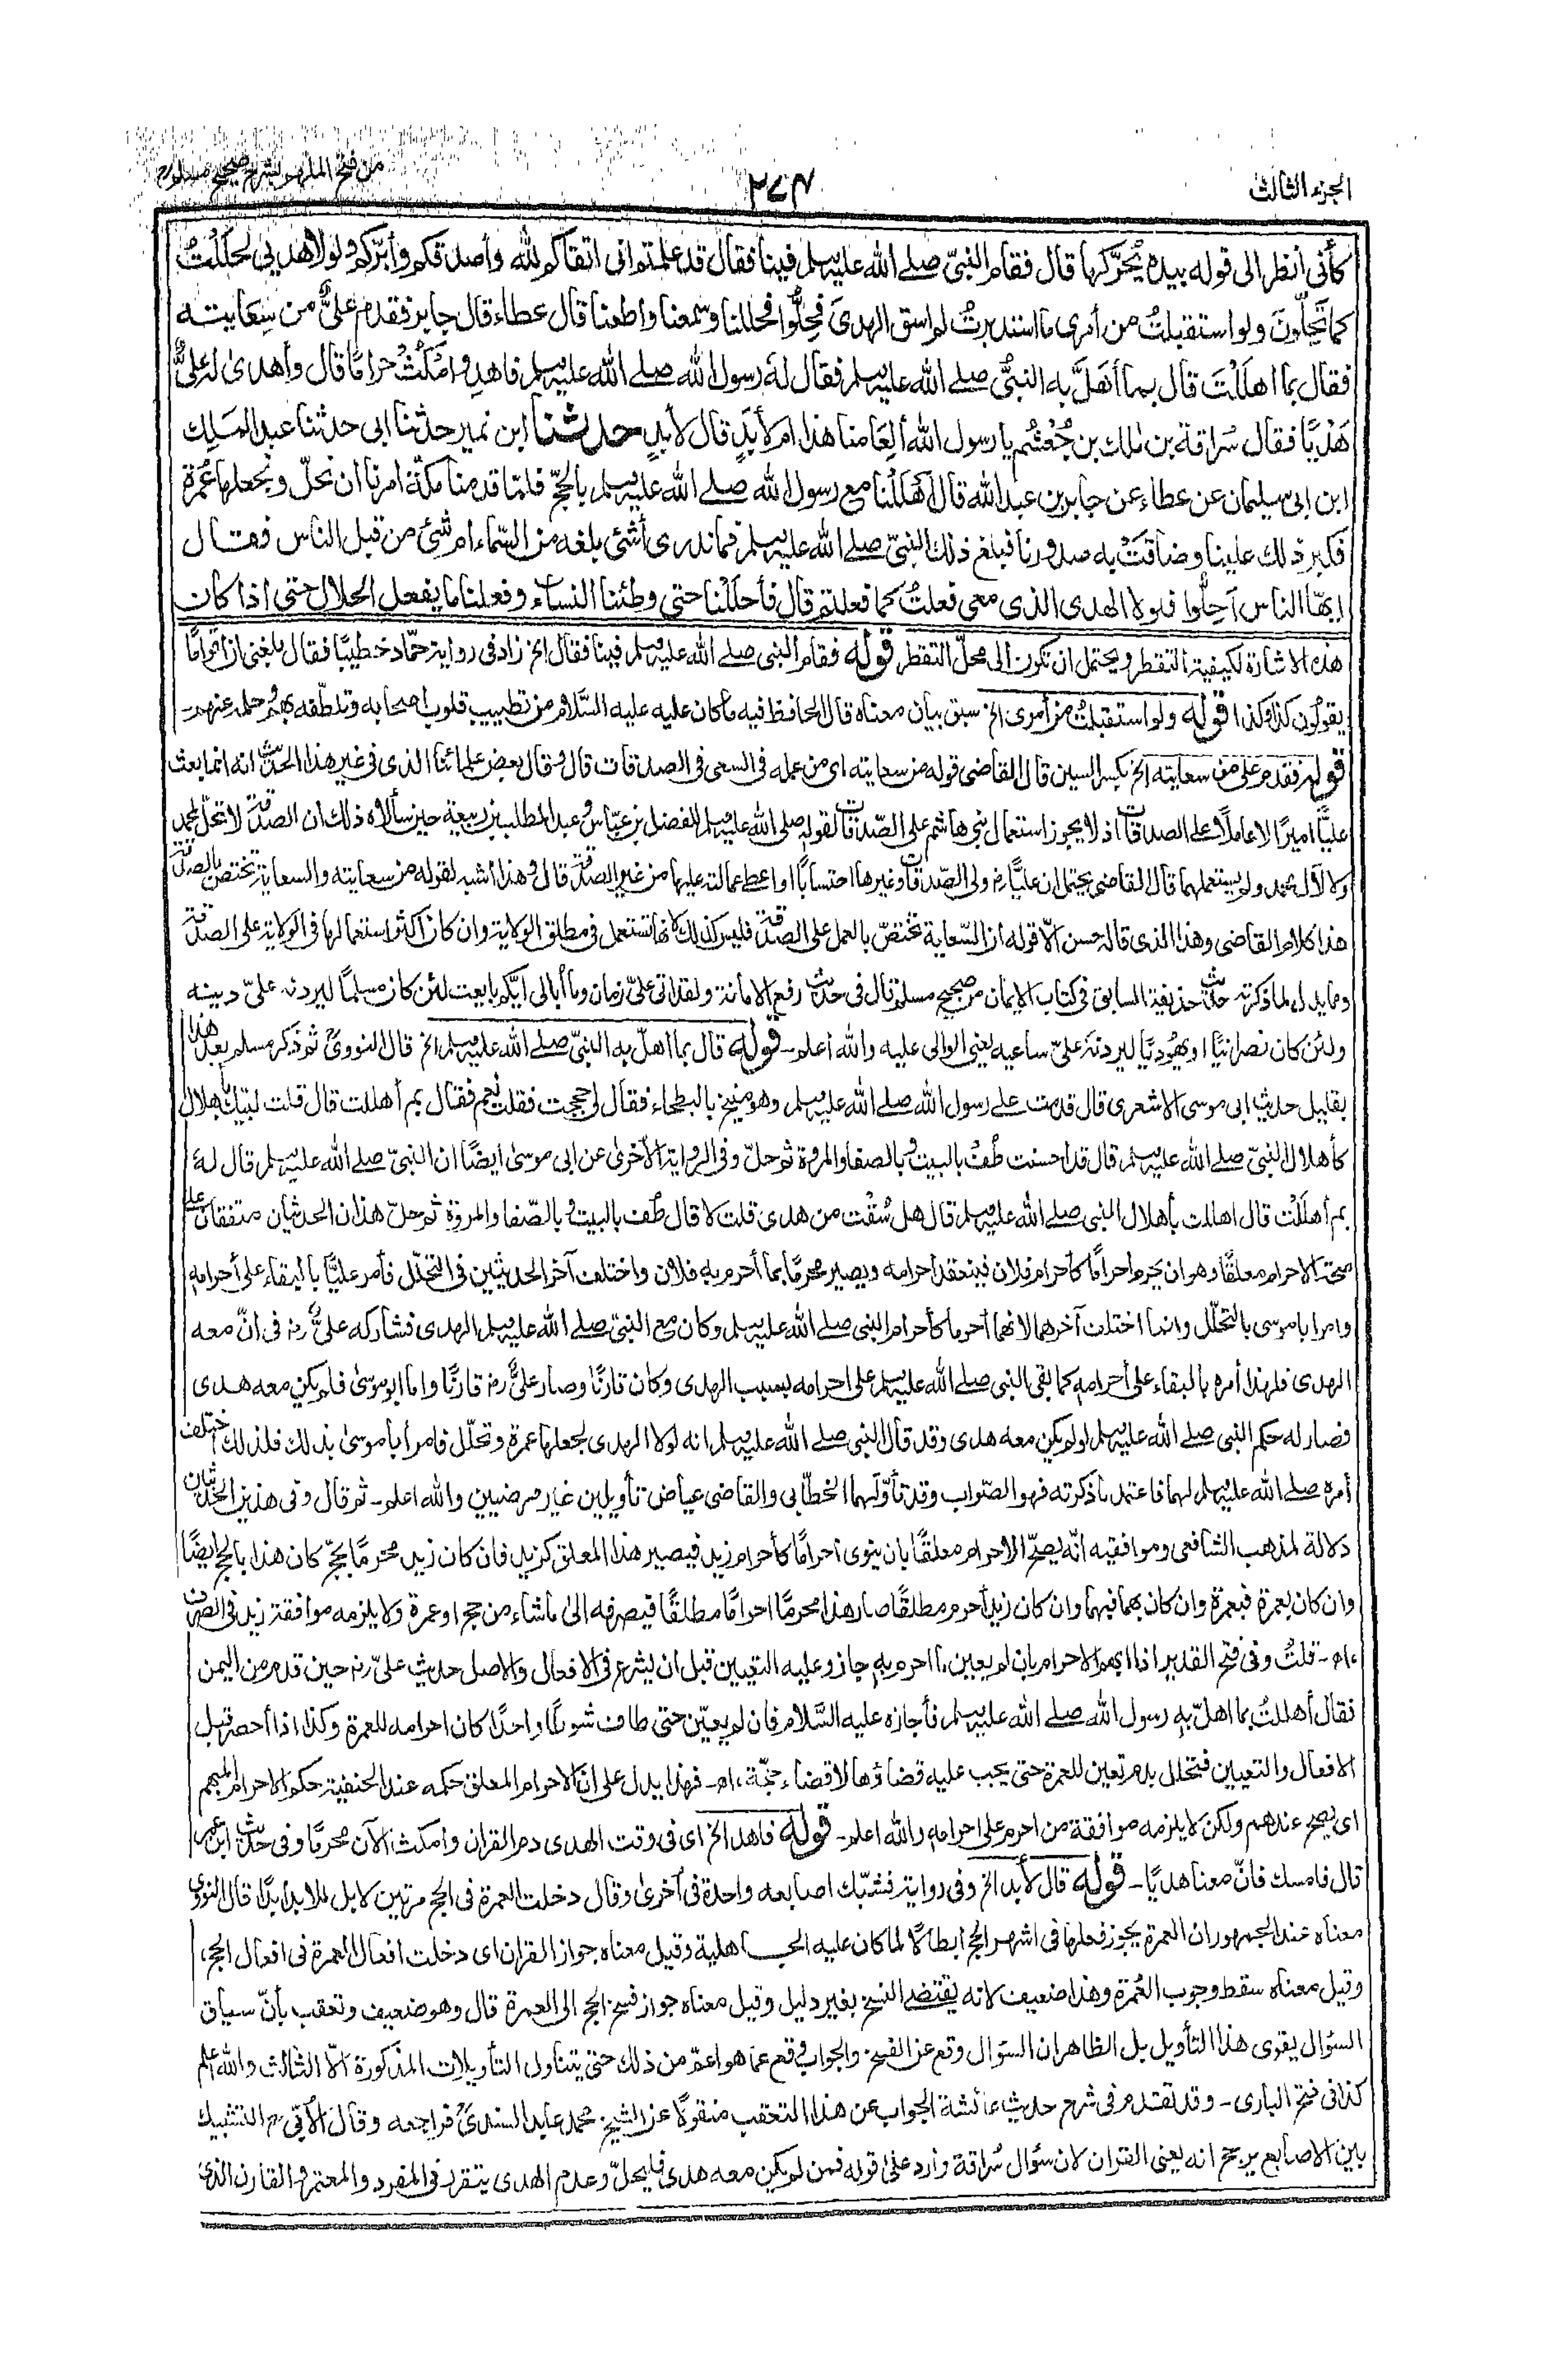 الجزء الثالث
٢٧٤
من فتح الملهم بشرح صحيح مسلم
كأنى أنظر الى قوله بيده يُحَرِّكها قال فقام النبيّ صلے الله عليه وسلم فينا فقال قد علمتم انى اتقاكم لله وأصدقكم وأبرّكم ولولا هديي لحَلَلْتُ
كما تَحِلّونَ ولو استقبلتُ من أمرى ما استدبرتُ لم اسق الهدىَ فحِلُّوا فحللنا وسمعنا واطعنا قال عطاء قال جابر فقدم علىٌّ من سِعَايته
فقال بما اهلَلْتَ قال بما أهَلَّ به النبىُّ صلے الله عليه وسلم فقال له رسول الله صلے الله عليه وسلم فاهدِ وامْكُثْ حرامًا قال وأهدى له علىٌّ
هَدْيًا فقال سُراقة بن مٰلك بن جُعْشُم يا رسول الله ألِعَامنا هذا ام لأبَدٍ قال لأبدٍ حدثنا ابن نمير حدثنا ابى حدثنا عبد المَلِك
ابن ابى سليمان عن عطاء عن جابر بن عبد الله قال أَهْلَلْنا مع رسول الله صلے الله عليه وسلم بالحجّ فلمّا قدمنا مكّة امرنا ان نحلّ ونجعلها عُمْرة
فكبر ذلك علينا وضاقتْ به صدورنا فبلغ ذلك النبىّ صلے الله عليه وسلم فما ندرى أشئ بلغه من السّماء ام شئ من قبل الناس فقال
ايّها الناس اَحِلُّوا فلولا الهدى الذى معى فعلتُ كما فعلتم قال فأحلَلْنا حتى وطئنا النساء وفعلنا ما يفعل الحلال حتى اذا كان
هذه الاشارة لكيفية التقطر ويحتمل ان تكون الى محلّ التقطر قوله فقام النبى صلے الله عليه وسلم فينا فقال الخ زاد فى رواية حمّاد خطيبًا فقال بلغنى ان اقوامًا
يقولون كذا وكذا قوله ولو استقبلتُ من أمرى الخ سبق بيان معناه قال الحافظ فيه ما كان عليه عليه السَّلام من تطييب قلوب اصحابه وتلطّفه بهم وحلمه عنهم۔
قوله فقدم على من سعايته الخ بكسر السين قال القاضى قوله من سعايته اى من عمله فى السعى فى الصدقات قال وقال بعض علمائنا الذى فى غير هذا الحديث انه انما بعث
عليًّا اميرًا لا عاملًا على الصدقات اذ لا يجوز استعمال بنى هاشم على الصّدقات لقوله صلى الله عليه وسلم للفضل بن عبّاس وعبد المطلب بن ربيعة حين سألاه ذلك ان الصدقة لا تحلّ لمحمد
ولا لآل محمد ولم يستعملهما قال القاضى يحتمل ان عليًّا رض ولى الصّدقات وغيرها احتسابًا او اعطى عمالته عليها من غير الصدقة قال وهذا اشبه لقوله من سعايته والسعاية تختص بالصدقة
هذا كلام القاضى وهذا الذى قاله حسن الّا قوله ان السّعاية تختصّ بالعمل على الصدقة فليس كذلك لانها تستعمل فى مطلق الولاية وان كان اكثر استعمالها فى الولاية على الصدقة
ومما يدل لما ذكرته حديث حذيفة السابق فى كتاب الايمان من صحيح مسلم قال فى حديث رفع الامانة ولقد اتى علىّ زمان وما أبالى ايّكم بايعت لئن كان مسلمًا ليردنه علىّ دينه
ولئن كان نصرانيًّا او يهُوديًّا ليردنّه علىّ ساعيه يعنى الوالى عليه والله أعلم۔ قوله قال بما أهلّ به النبىّ صلے الله عليه وسلم الخ قال النووىّ ثم ذكر مسلم بعد هذا
بقليل حديث ابى موسى الاشعرى قال قدمت على رسول الله صلے الله عليه وسلم وهو منيخ بالبطحاء فقال لى حججت فقلت نعم فقال بم أهللت قال قلت لبّيك باهلال
كأهلال النبىّ صلے الله عليه وسلم قال قد احسنت طُفْ بالبيت وبالصفا والمروة ثم حلّ وفى الرواية الأخرىٰ عن ابى موسىٰ ايضًا ان النبىّ صلے الله عليه وسلم قال له
بم أهلَلْت قال اهللت بأهلال النبى صلے الله عليه وسلم قال هل سُقْت من هدى قلت لا قال طُف بالبيت وبالصّفا والمروة ثم حلّ هذان الحديثان متفقان على
صحّة الاحرام معلقًا وهو ان يحرم احرامًا كأحرام فلان فينعقد احرامه ويصير محرمًا بما أحرم به فلان واختلف آخر الحديثين فى التحلّل فأمر عليًّا بالبقاء على أحرامه
وامر ابا موسى بالتحلّل وانما اختلف آخرهما لانهما أحرما كأحرام النبى صلے الله عليه وسلم وكان مع النبىّ صلے الله عليه وسلم الهدى فشاركه علىٌّ رض فى انّ معه
الهدى فلهذا أمره بالبقاء على أحرامه كما بقى النبى صلے الله عليه وسلم على احرامه بسبب الهدى وكان قارنًا وصار علىٌّ رض قارنًا واما ابو موسىٰ فلم يكن معه هدى
فصار له حكم النبى صلے الله عليه وسلم لو لم يكن معه هدى وقد قال النبى صلے الله عليه وسلم انه لولا الهدى لجعلها عمرة وتحلّل فامر أبا موسىٰ بذلك فلذلك اختلف
أمره صلے الله عليه وسلم لهما فاعتمد ما ذكرته فهو الصّواب وقد تأوّلهما الخطّابى والقاضى عياض تأويلين غير مرضيين والله اعلم۔ ثم قال وفى هذين الحديثين
دلالة لمذهب الشافعى وموافقيه انّه يصحّ الاحرام معلقًا بان ينوى احرامًا كأحرام زيد فيصير هذا المعلق كزيد فان كان زيد محرمًا بحجّ كان هذا بالحج ايضًا
وان كان بعمرة فبعمرة وان كان بهما فبهما وان كان زيد أحرم مطلقًا صار هذا محرمًا احرامًا مطلقًا فيصرفه الىٰ ما شاء من حج او عمرة ولا يلزمه موافقة زيد فى الصرف
،اھ۔ قلتُ وفى فتح القدير اذا ابهم الاحرام بان لم يعين ما احرم به جاز وعليه التعيين قبل ان يشرع فى الافعال والاصل حديث علىّ رض حين قدم من اليمن
فقال أهللتُ بما اهلّ به رسول الله صلے الله عليه وسلم فأجازه عليه السَّلام فان لم يعيّن حتى طاف شوطًا واحدًا كان احرامه للعمرة وكذا اذا أحصر قبل
الافعال والتعيين فتحلل بدم تعين للعمرة حتى يجب عليه قضاؤها لا قضاء حجّة ،اھ۔ فهذا يدل على انّ الاحرام المعلق حكمه عند الحنفية حكم الاحرام المبهم
اى يصح عندهم ولكن لا يلزمه موافقة من احرم على احرامه والله اعلم۔ قوله فاهد الخ اى فى وقت الهدى دم القران وامكث الآن محرمًا وفى حديث ابن عمر
قال فامسك فانّ معنا هديًا۔ قوله قال لأبد الخ وفى رواية فشبّك اصابعه واحدة فى أخرىٰ وقال دخلت العمرة فى الحج مرتين لا بل للابد ابدًا قال النووى
معناه عند الجمهور ان العمرة يجوز فعلها فى اشهر الحج ابطالًا لما كان عليه الجاهلية وقيل معناه جواز القران اى دخلت افعال العمرة فى افعال الحج،
وقيل معناه سقط وجوب العُمرة وهذا ضعيف لانه يقتضے النسخ بغير دليل وقيل معناه جواز فسخ الحج الى العمرة قال وهو ضعيف وتعقب بأنّ سياق
السؤال يقوى هذا التأويل بل الظاهر ان السؤال وقع عن الفسخ والجواب وقع عما هو اعمّ من ذلك حتى يتناول التأويلات المذكورة الّا الثالث والله اعلم
كذا فى فتح البارى۔ وقد تقدم فى شرح حديث عائشة الجواب عن هذا التعقب منقولًا عن الشيخ محمد عابد السندىّ فراجعه وقال الأبّى رح التشبيك
بين الاصابع يرجح انه يعنى القران لان سؤال سُراقة وارد علىٰ قوله فمن لم يكن معه هدى فليحلّ وعدم الهدى يتقرر فى المفرد والمعتمر والقارن الذى